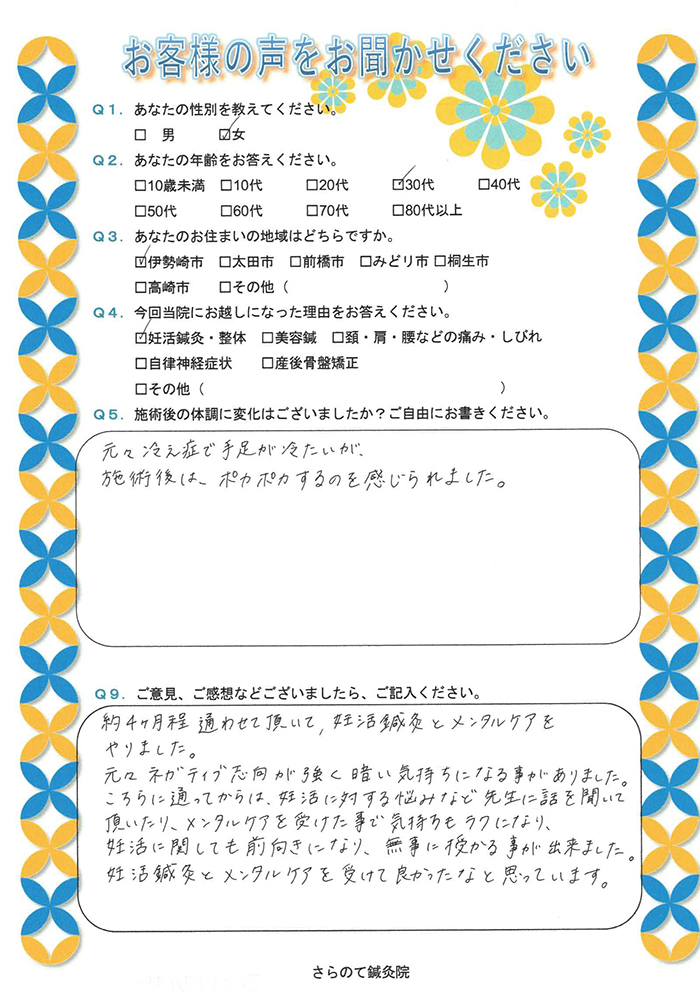 お客様の声をお聞かせください
Q1. あなたの性別を教えてください。
□ 男 ☑女
Q2. あなたの年齢をお答えください。
□10歳未満 □10代 □20代 ☑30代 □40代
□50代 □60代 □70代 □80代以上
Q3. あなたのお住まいの地域はどちらですか。
☑伊勢崎市 □太田市 □前橋市 □みどり市 □桐生市
□高崎市 □その他（ ）
Q4. 今回当院にお越しになった理由をお答えください。
☑妊活鍼灸・整体 □美容鍼 □頚・肩・腰などの痛み・しびれ
□自律神経症状 □産後骨盤矯正
□その他（ ）
Q5. 施術後の体調に変化はございましたか？ご自由にお書きください。
元々冷え症で手足が冷たいが、
施術後は、ポカポカするのを感じられました。
Q9. ご意見、ご感想などございましたら、ご記入ください。
約4ヶ月程通わせて頂いて、妊活鍼灸とメンタルケアを
やりました。
元々ネガティブ志向が強く暗い気持ちになる事がありました。
こちらに通ってからは、妊活に対する悩みなど先生に話を聞いて
頂いたり、メンタルケアを受けた事で気持ちもラクになり、
妊活に関しても前向きになり、無事に授かる事が出来ました。
妊活鍼灸とメンタルケアを受けて良かったなと思っています。
さらのて鍼灸院